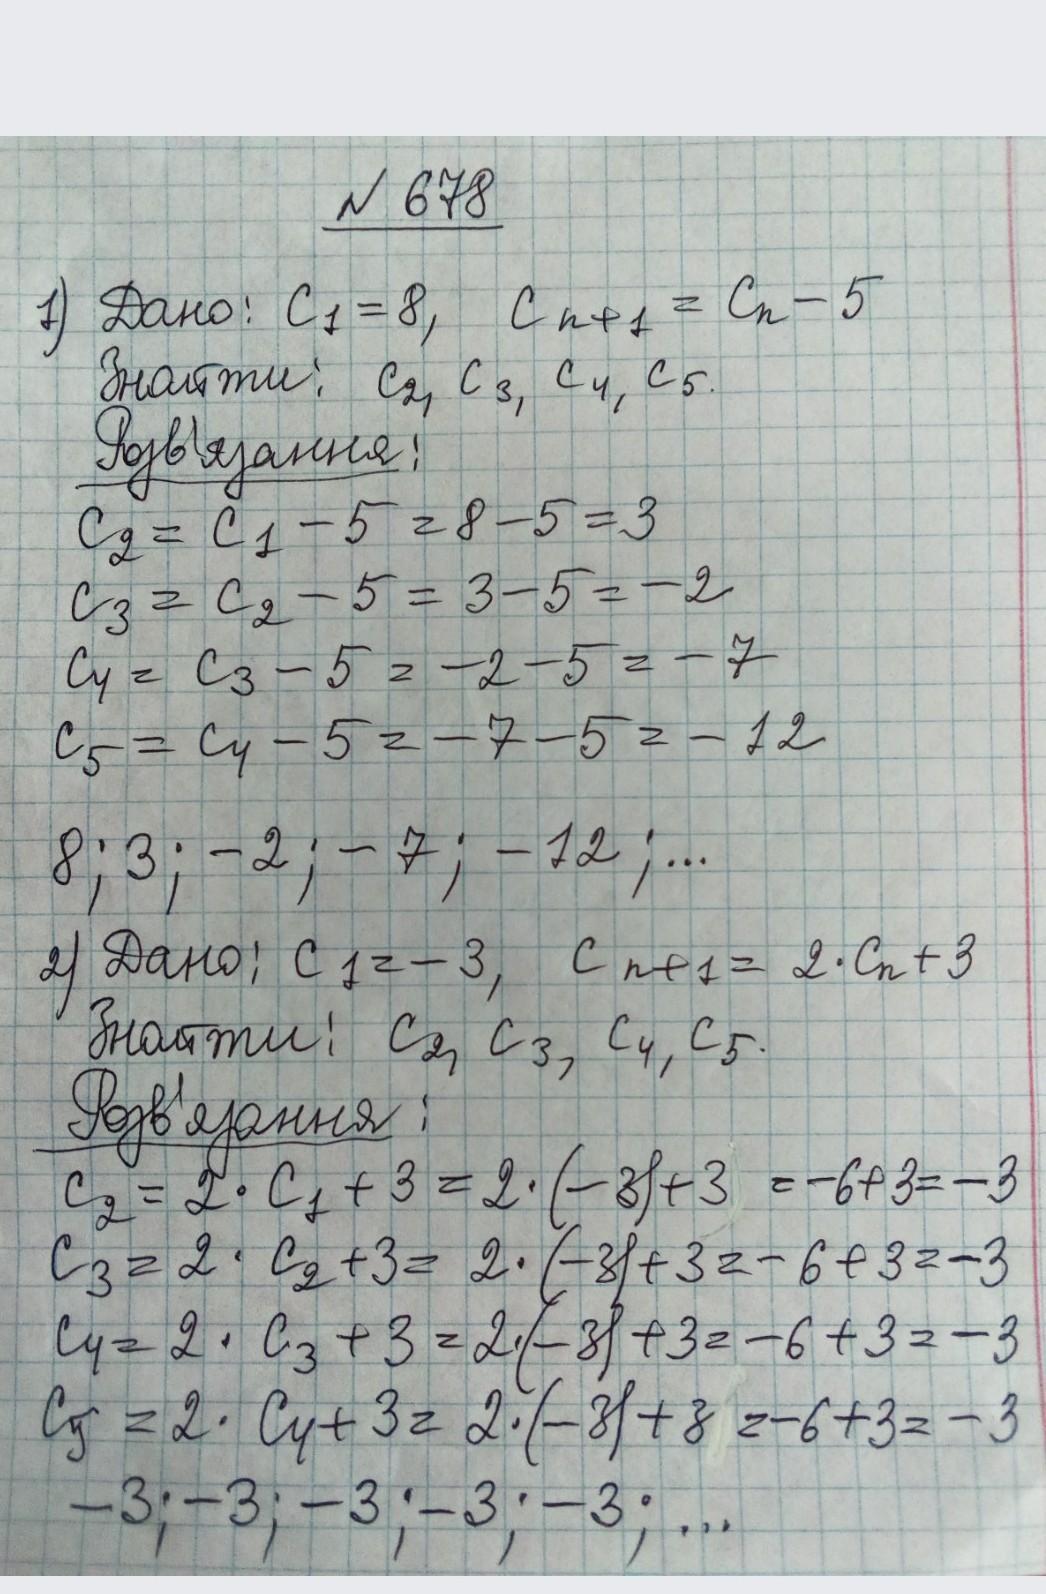 № 678
1) Дано: C₁ = 8, Cₙ₊₁ = Cₙ − 5
Знайти: C₂, C₃, C₄, C₅.
Розв'язання:
C₂ = C₁ − 5 = 8 − 5 = 3
C₃ = C₂ − 5 = 3 − 5 = −2
C₄ = C₃ − 5 = −2 − 5 = −7
C₅ = C₄ − 5 = −7 − 5 = −12
8; 3; −2; −7; −12; ...
2) Дано: C₁ = −3, Cₙ₊₁ = 2·Cₙ + 3
Знайти: C₂, C₃, C₄, C₅.
Розв'язання:
C₂ = 2·C₁ + 3 = 2·(−3) + 3 = −6 + 3 = −3
C₃ = 2·C₂ + 3 = 2·(−3) + 3 = −6 + 3 = −3
C₄ = 2·C₃ + 3 = 2·(−3) + 3 = −6 + 3 = −3
C₅ = 2·C₄ + 3 = 2·(−3) + 3 = −6 + 3 = −3
−3; −3; −3; −3; −3; ...